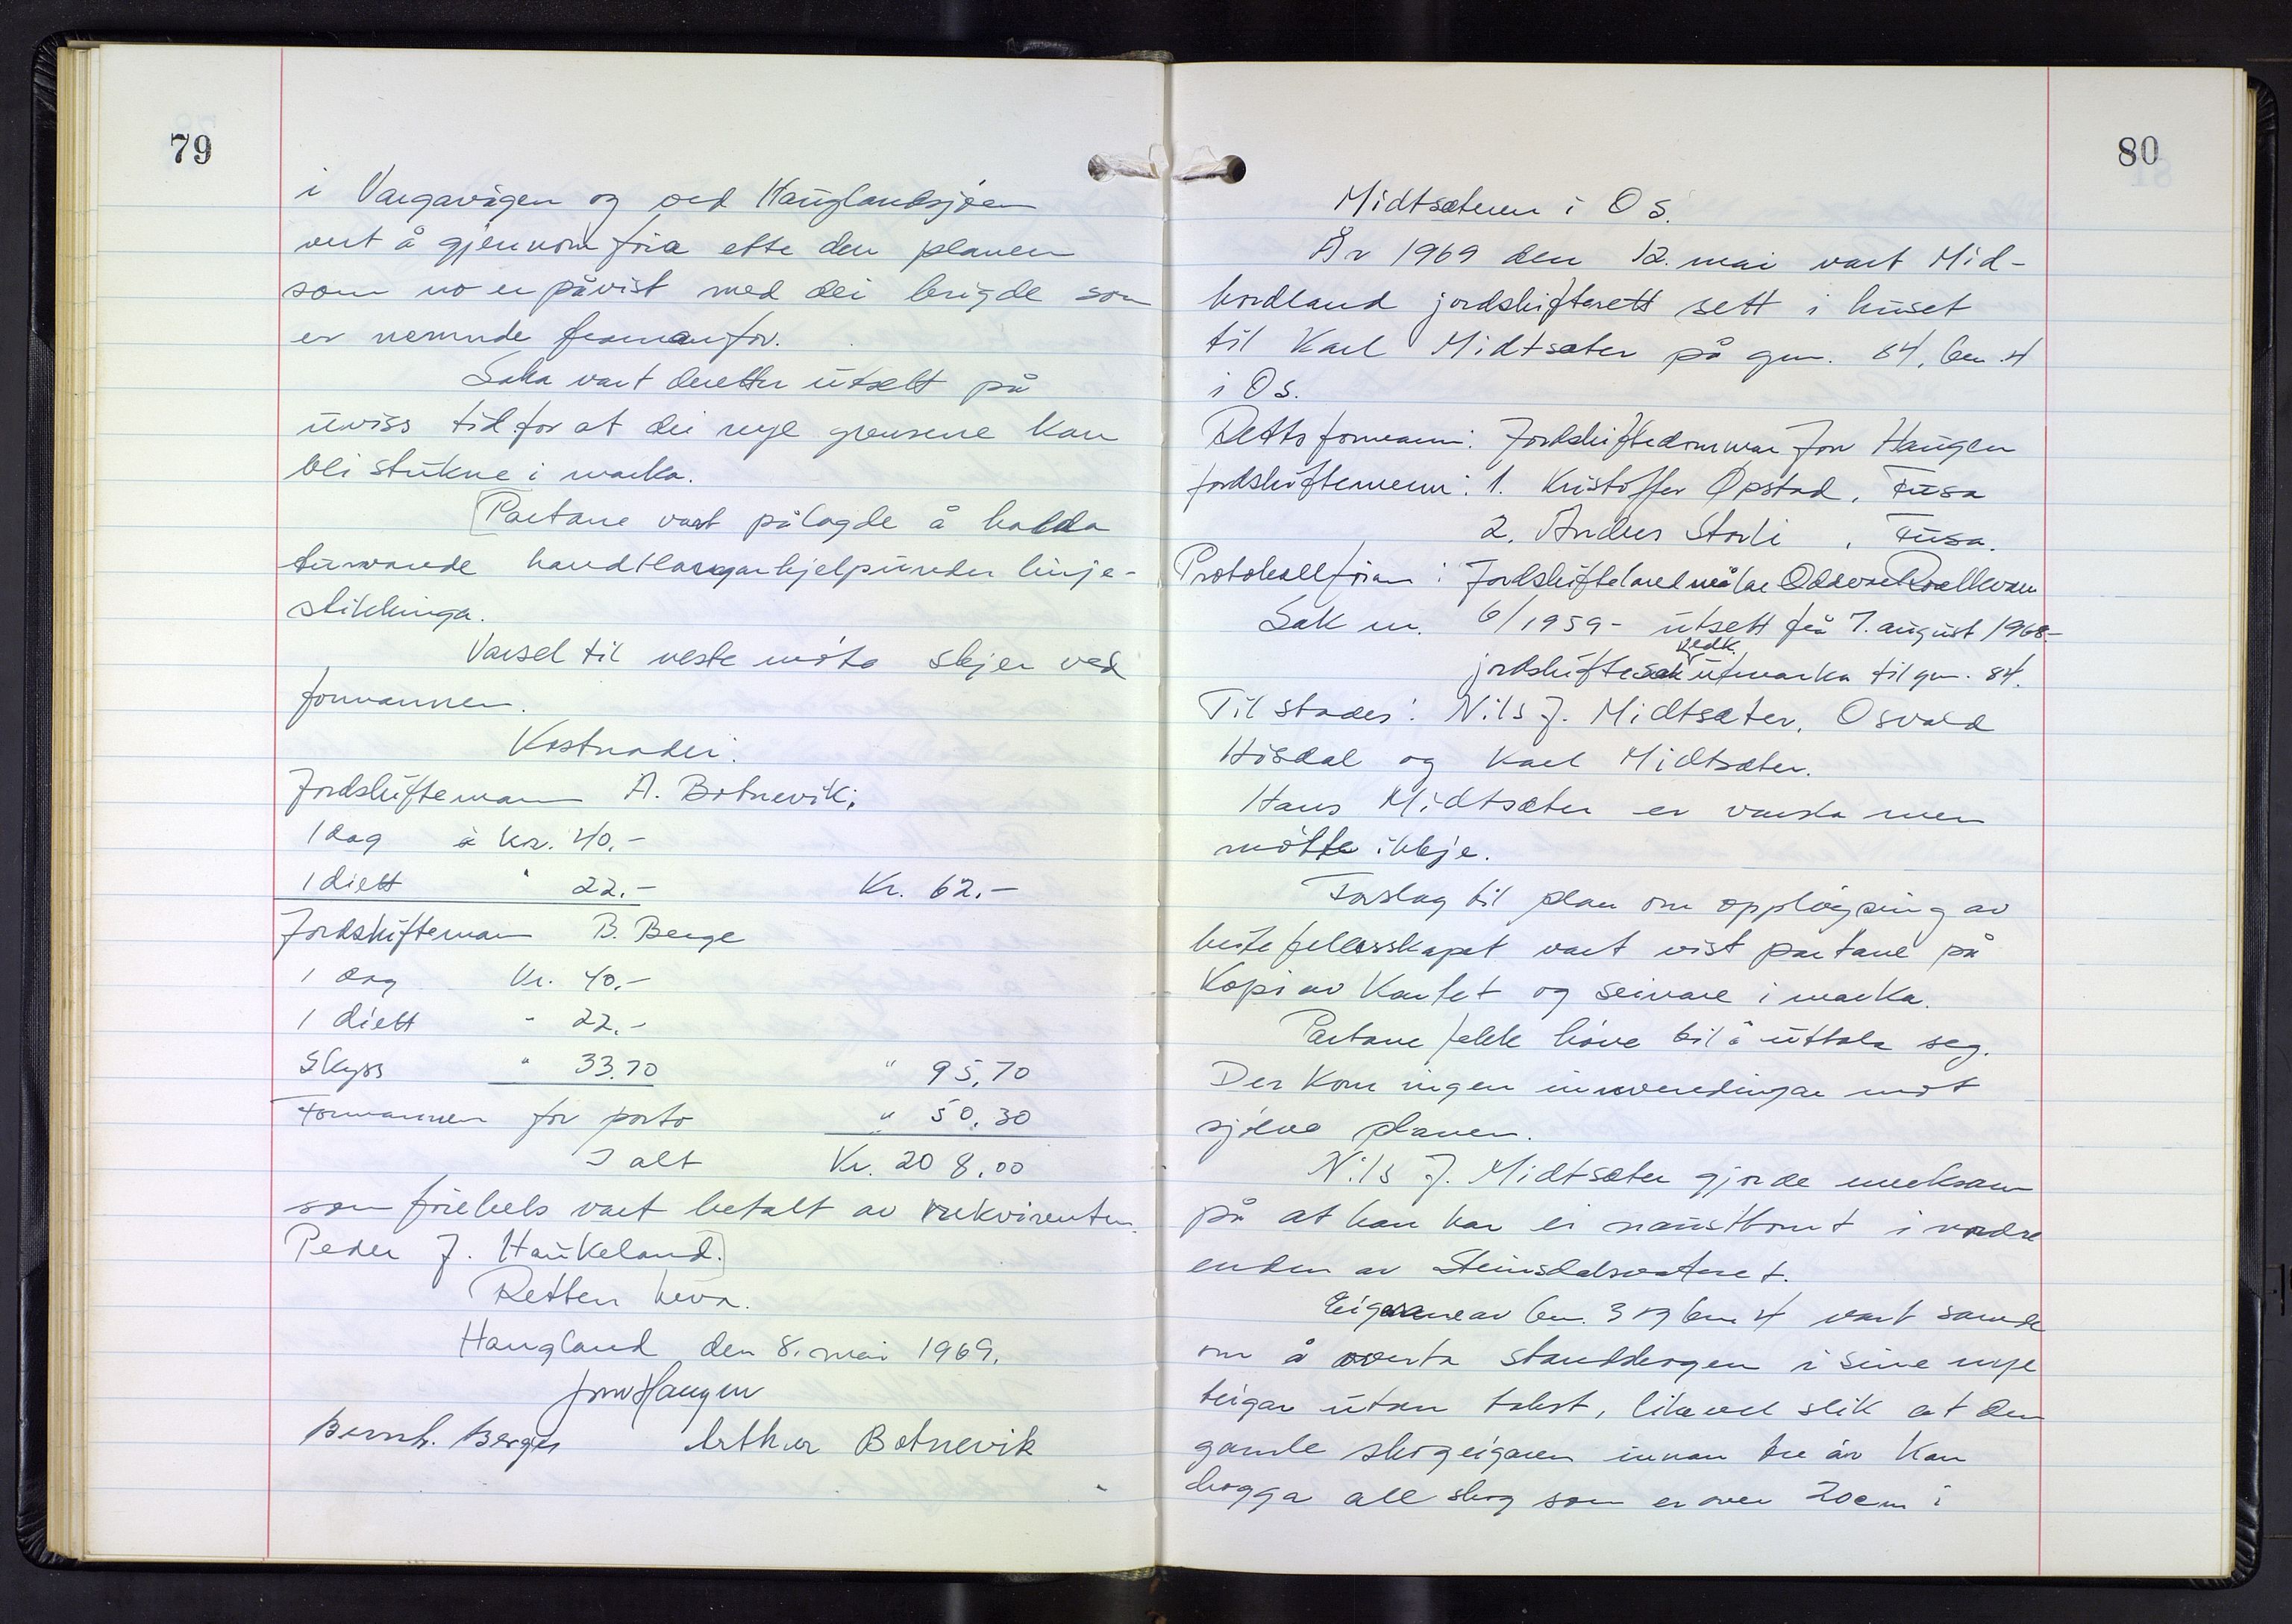 79
i Vargavågen og ved Hauglandsjøen
vert å gjennomføra ette den planen
som no er påvist med dei brigde som
er nemnde framanfor.
Saka vart deretter utsett på
uviss tid for at dei nye grensene kan
bli stukne i marka.
Partane vart pålagde å halda
turvande handtlangarhjelp under linje-
stikkinga.
Varsel til neste møte skjer ved
formannen.
Kostnader.
Jordskiftemann A. Botnevik:
1 dag à kr. 40.-
1 diett " 22.- Kr. 62.-
Jordskiftemann B. Berge
1 dag Kr. 40.-
1 diett - 22.-
Skyss " 33.70 " 95,70
Formannen for porto " 50,30
I alt Kr. 208,00
som førebels vart betalt av rekvirenten
Peder J. Haukeland.
Retten heva.
Haugland den 8. mai 1969.
Jon Haugen
Bernh. Berge Arthur Botnevik
80
Midtsæteren i Os.
År 1969 den 12. mai vart Mid-
hordland jordskifterett sett i huset
til Karl Midtsæter på gnr. 84, bnr. 4
i Os.
Rettsformann: Jordskiftedommar Jon Haugen
Jordskiftemenn: 1. Kristoffer Opstad, Fusa
2. Anders Storli, Fusa.
Protokollførar: Jordskiftelandmålar Oddvar Kvalkvam
Sak nr. 6/1959- utsett frå 7. august 1968-
vedk.
jordskiftesak utmarka til gnr. 84.
Til stades: Nils J. Midtsæter, Osvald
Hisdal og Karl Midtsæter.
Hans Midtsæter er varsla men
møtte ikkje.
Forslag til plan om oppløysing av
beitefellesskapet vart vist partane på
Kopi av Kartet og seinare i marka.
Partane fekk høve til å uttala seg.
Der kom ingen innvendingar mot
sjølve planen.
Nils J. Midtsæter gjorde merksam
på at han har ei nausttomt i nordre
enden av Steinsdalsvatnet.
Eigarane av bnr. 3 og bnr. 4 vart samde
om å overta standskogen i sine nye
teigar utan takst, likevel slik at den
gamle skogeigaren innan tre år kan
hogga all skog som er over 20 cm i